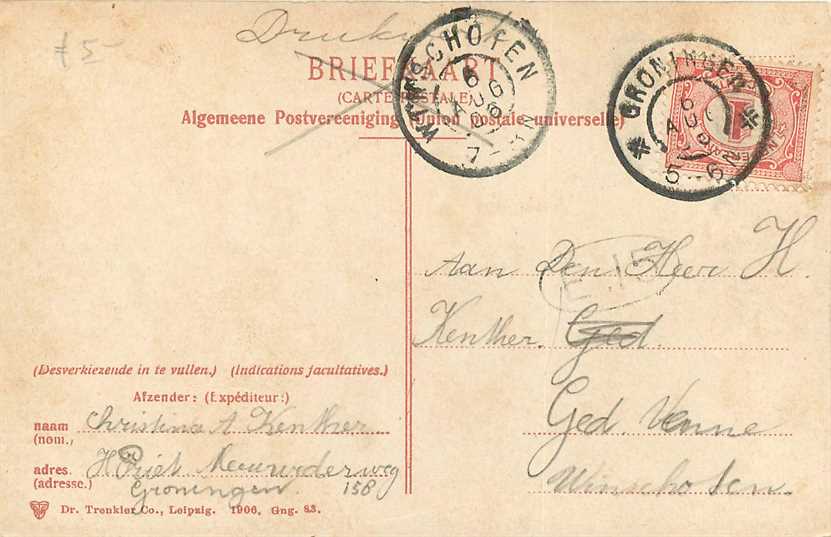 Drukwerk
f5
BRIEFKAART
(CARTE POSTALE)
Algemeene Postvereeniging (Union postale universelle)
WINSCHOTEN
6 AUG 06
7-8 N
GRONINGEN
6 AUG 06
5-6 N
1
E 15
Aan Den Heer H.
Kenther. Ged.
Ged. Venne
Winschoten.
(Desverkiezende in te vullen.) (Indications facultatives.)
Afzender: (Expéditeur:)
naam Christina A Kenther
(nom.,
adres H Meeuwerderweg
(adresse.) Groningen. 158
Dr. Trenkler Co., Leipzig. 1906, Gng. 83.